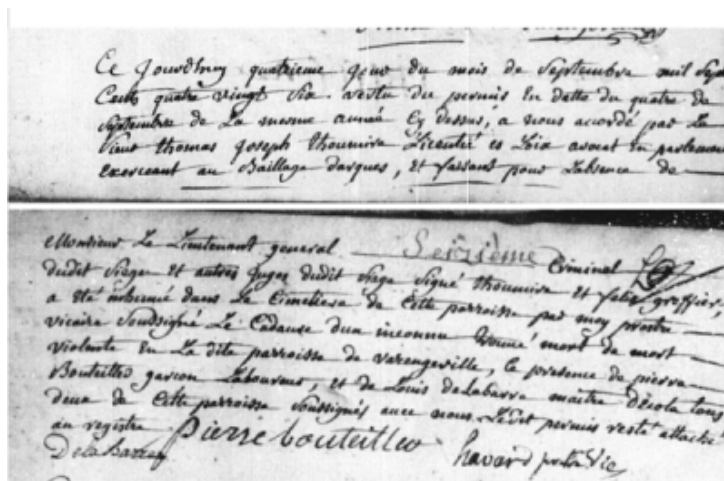 Ce jourdhuy quatrieme jour du mois de Septembre mil Sept
Cents quatre vingt Six vertu du permis En datte du quatre de
Septembre de La mesme année Cy dessus, a nous accordé par Le
Sieur thomas joseph thoumire Licentié es Loix avocat En parlement
Exerceant au Baillage darques, et faisant pour Labsence de
Monsieur Le Lieutenant general Seizieme Criminel
dudit Siege Et autres juges dudit Siege Signé thoumire Et greffier,
a Eté inhumé dans Le Cimetiere de Cette parroisse par moy prestre
vicaire Soussigné Le Cadavre dun inconnu trouvé mort de mort
violente En La dite parroisse de varengeville, En presence de pierre
Bouteiller garçon Laboureur, et de Louis delabarre maitre décole tous
deux de Cette parroisse Soussignés avec nous. Ledit permis resté attaché
au registre
Delabarre Pierre bouteiller havard ptre Vic